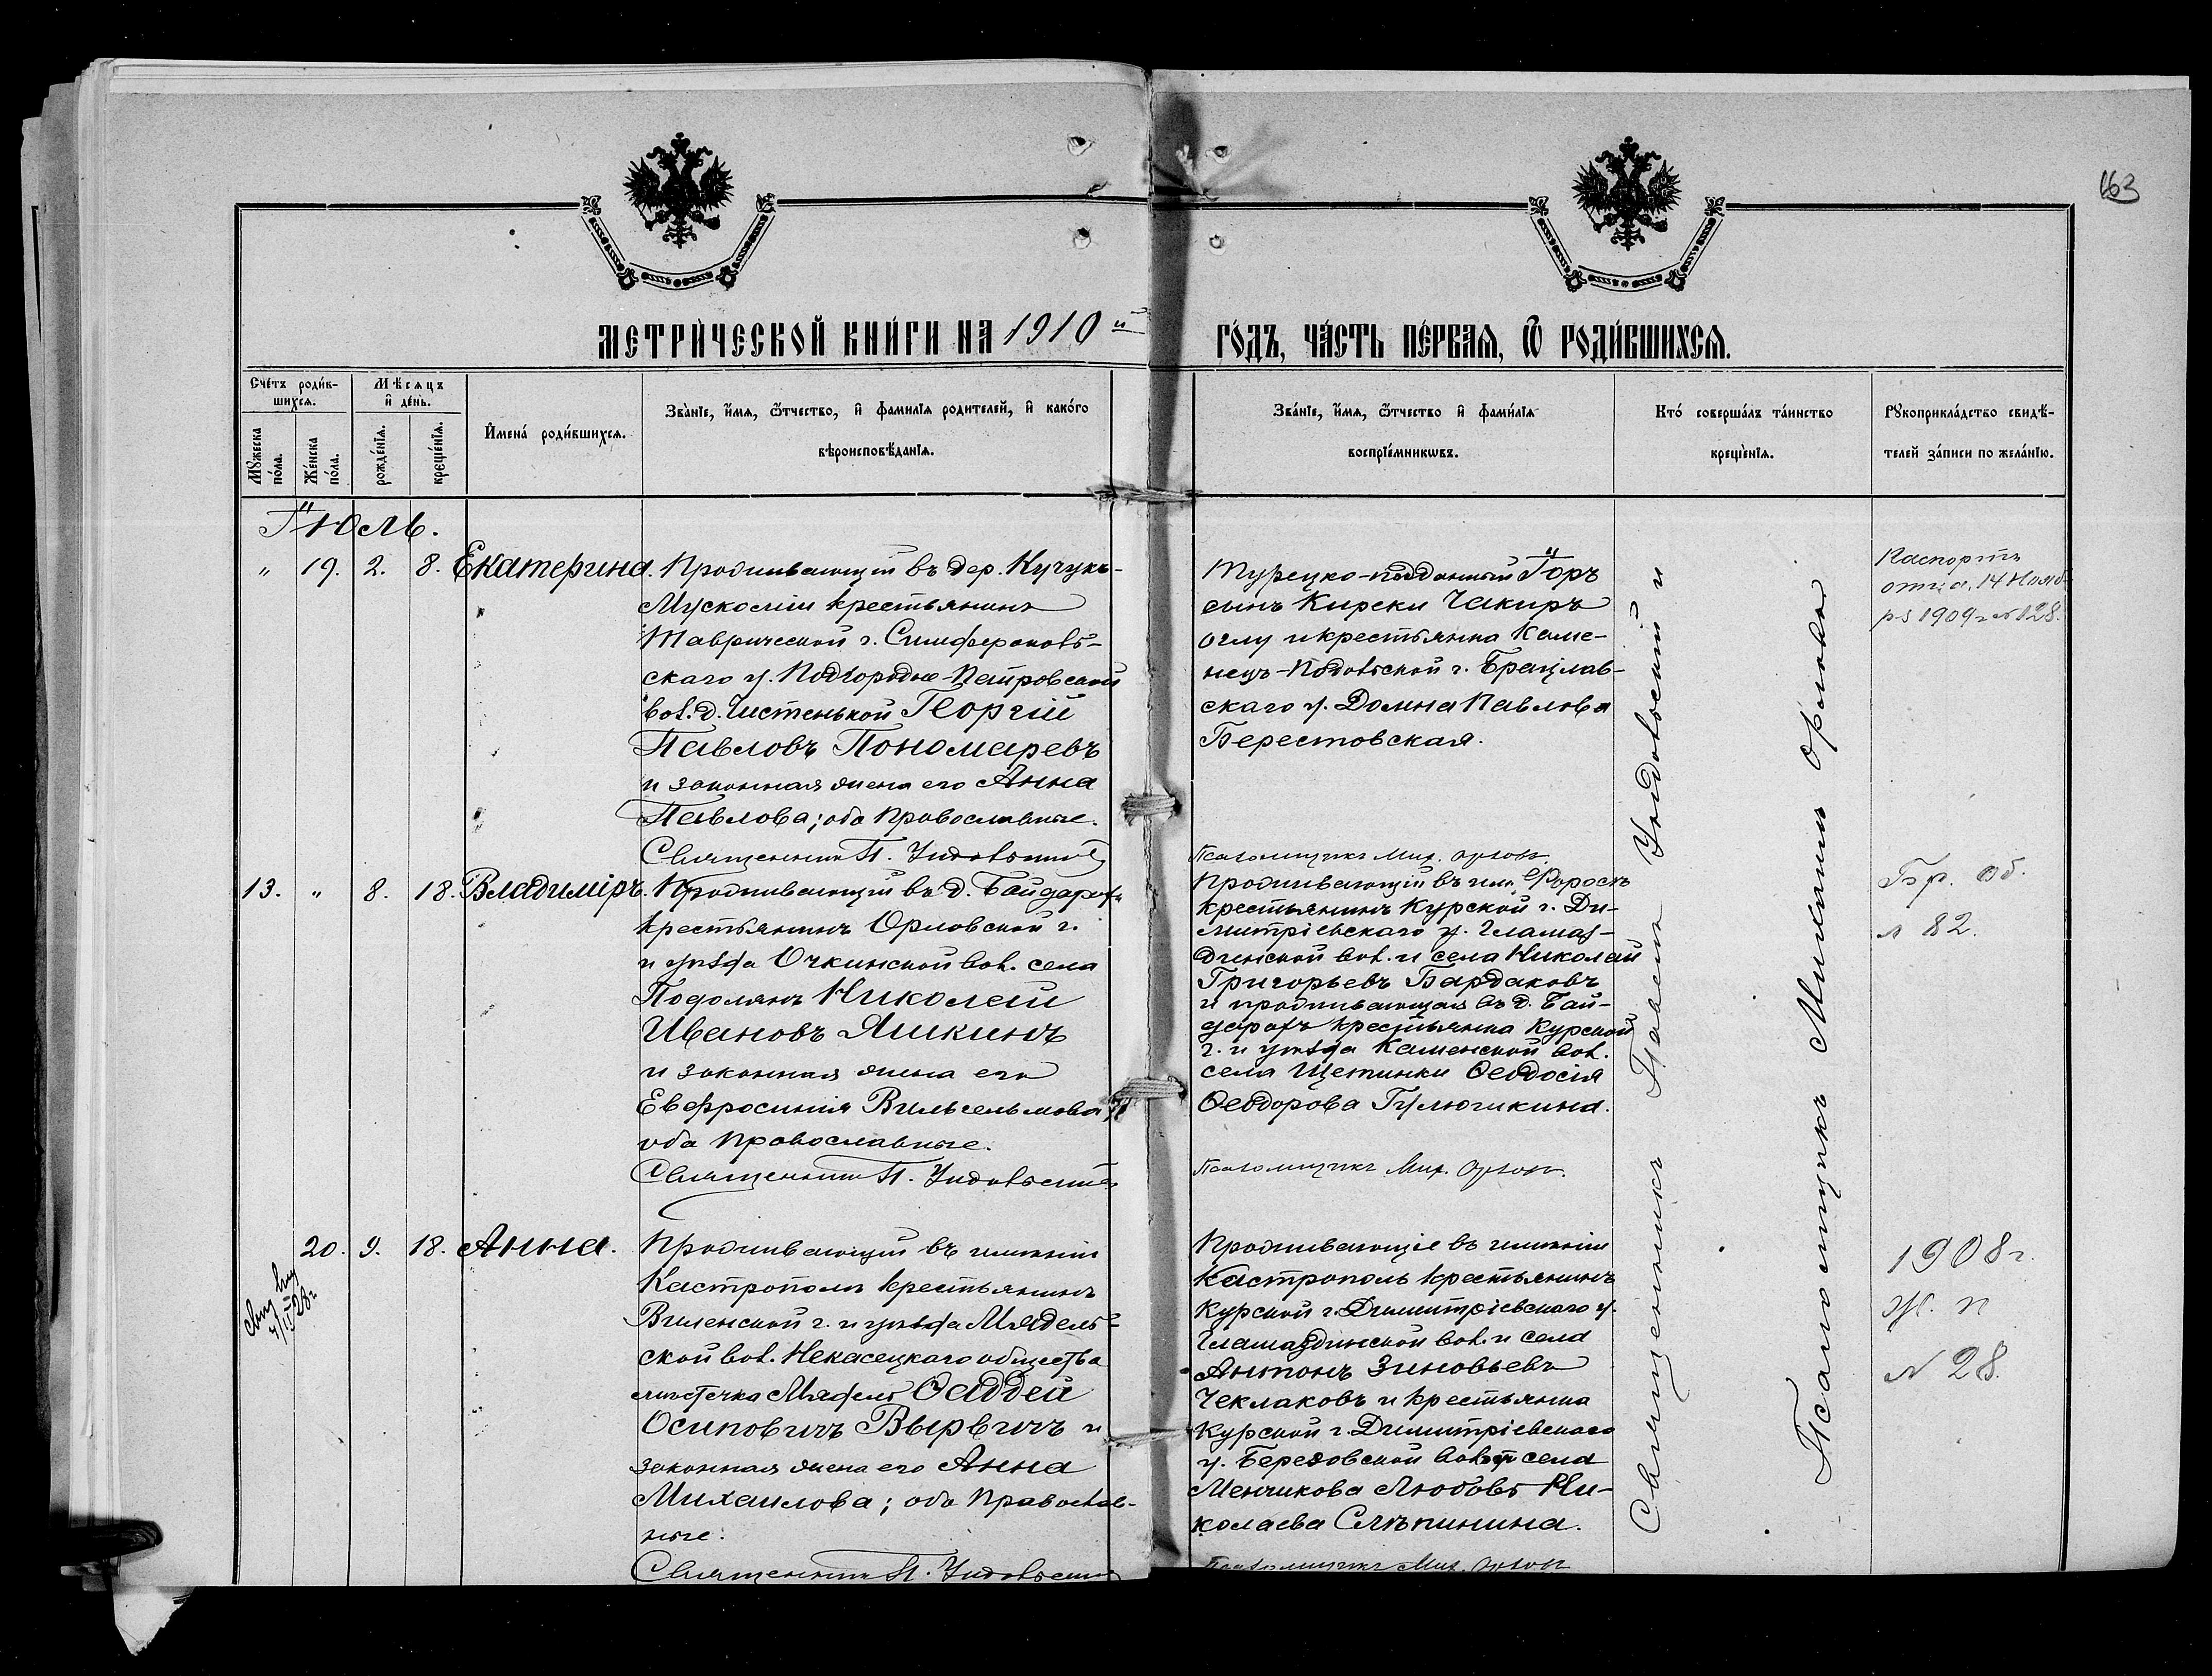 163
МЕТРИ́ЧЕСКОЙ КНИ́ГИ НА 1910 й
ГО́ДЪ, ЧА́СТЬ ПЕ́РВАЯ, Ѿ РОДИ́ВШИХСЯ.
Сче́тъ роди́в-
шихся.
Мѣ́сяцъ
и̂ де́нь.
Мꙋжеска по́ла.
Же́нска по́ла.
рожде́нїя.
креще́нїя.
И̂мена́ роди́вшихся.
Зва́нїе, и́мя, ѻ҆́тчество, и̂ фамилїя родителей, и̂ како́го
вѣроисповѣ́данїя.
Зва́нїе, и́мя, ѻ҆́тчество и̂ фами́лїя
воспрїе́мникѡвъ.
Кто́ соверша́лъ та́инство
креще́нїя.
Рꙋкоприкла́дство свидѣ́-
телей за́писи по жела́нїю.
Іюль.
" 19. 2. 8. Екатерина.
Проживающій въ дер. Кучукъ-
Мускомьи крестьянинъ
Таврической г. Симферополь-
скаго у. Подгородне-Петровской
вол. д. Чистенькой Георгій
Павловъ Пономаревъ
и законная жена его Анна
Павлова; оба православные.
Священникъ П. Ундольскій
Турецко-подданный Іоръ
сынъ Кирски Чакиръ
оглу и крестьянка Каме-
нецъ-Подольской г. Брацлав-
скаго у. Домна Павлова
Берестовская.
Псаломщикъ Мих. Орловъ.
Паспортъ
отца, 14 Нояб-
ря 1909 г № 128.
13. " 8. 18. Владиміръ.
Проживающій въ д. Байдарахъ
крестьянинъ Орловской г.
и уѣзда Очкинской вол. села
Подолянъ Николай
Ивановъ Яшкинъ
и законная жена его
Евфросинія Вильгельмова;
оба православные.
Священникъ П. Ундольскій
Проживающій въ им. Форосъ
крестьянинъ Курской г. Ди-
митріевскаго у. Гламаз-
динской вол. и села Николай
Григорьевъ Бардаковъ
и проживающая въ д. Бай-
дарахъ крестьянка Курской
г. и уѣзда Каменской вол.
села Щетинки Ѳеодосія
Ѳеодорова Гулючикина.
Псаломщикъ Мих. Орловъ.
Бр. Об.
№ 82.
20. 9. 18. Анна.
Проживающій въ имѣніи
Кастрополь крестьянинъ
Виленской г. и уѣзда Мядель-
ской вол. Некасецкаго общества
мѣстечка Мядель Ѳаддей
Осиповичъ Вырвичъ и
законная жена его Анна
Михаилова; оба православ-
ные.
Священникъ П. Ундольскій
Проживающіе въ имѣніи
Кастрополь крестьянинъ
Курской г. Димитріевскаго у.
Гламаздинской вол. и села
Антонъ Зиновьевъ
Чеклаковъ и крестьянка
Курской г. Димитріевскаго
у. Березовской вол. села
Менчикова Любовь Ни-
колаева Слѣпинина.
Псаломщикъ Мих. Орловъ
1908 г.
Ж. п
№ 28.
Священникъ Павелъ Ундольскій и
Псаломщикъ Михаилъ Орловъ